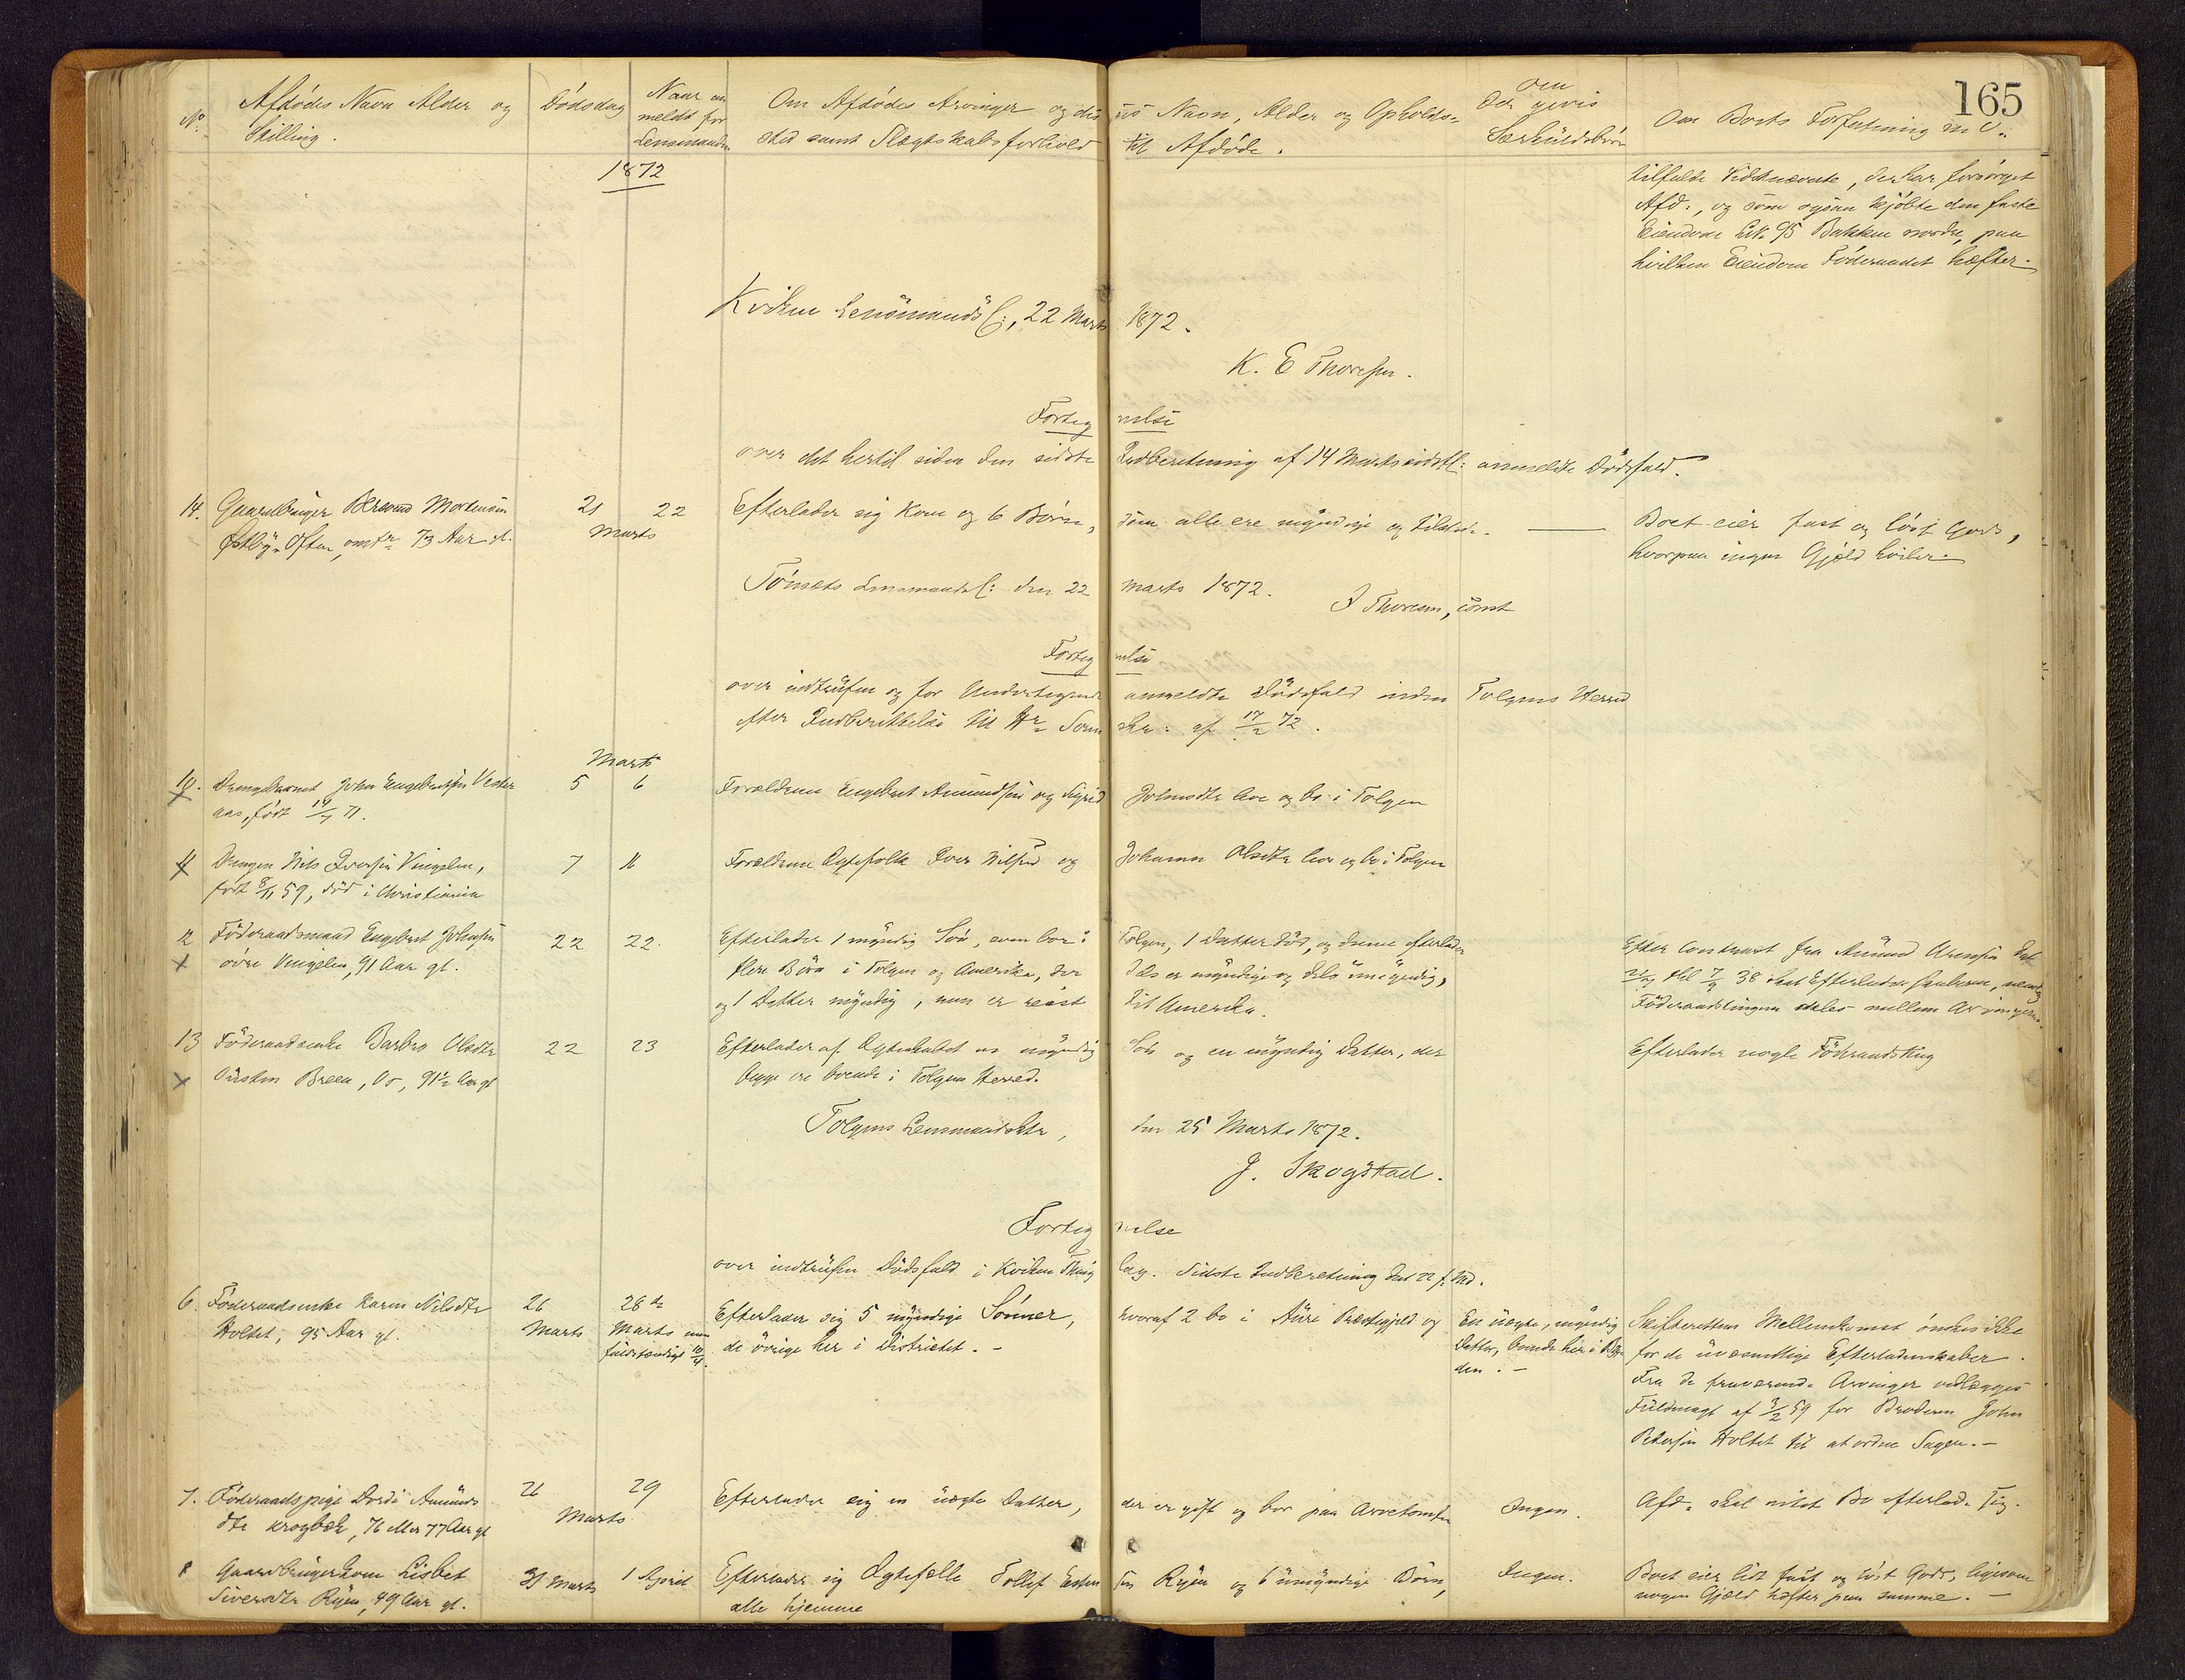 165
No Afdødes Navn Alder og Stilling.
Dødsdag
Naar anmeldt for Lensmanden
Om Afdødes Arvinger og disses Navn, Alder og Opholdssted samt Slægtskabsforhold til Afdøde.
Om Særkuldsbørn
Om Boets Forfatning m. v.
1872
tilfalde Vedkommende, der har forsørget
Afd:, og som ogsaa kjøbte den faste
Eiendom L.N. 95 Bakken nordre, paa
hvilken Eiendom Föderaadet hæfter.
Kvikne Lensmands C:, 22 Marts 1872.
K. E Thoresen.
Fortegnelse
over det hertil siden den sidste Indberetning af 14 Marts sidstl: anmeldte Dødsfald.
14. Gaardbruger Berent Mortensen
Østby Øften, omtr. 73 Aar gl.
21 Marts
22
Efterlader sig Kone og 6 Børn, som alle ere myndige og tilstede.
Boet eier fast og løst Gods,
hvorpaa ingen Gjæld hviler.
Tönsets Lensmands C: den 22 Marts 1872.
J Thoresen, const
Fortegnelse
over indtrufne og for Undertegnede anmeldte Dødsfald inden Tolgens Herred
efter Indberettelse til Hr. Sorenskr: af 17/2 72.
Marts
10. Drengebarnet John Engebretsen Vesteraas, født 19/7 71.
5
6
Forældrene Engebret Amundsen og Sigrid Johnsdtr leve og bo i Tolgen
11 Drengen Nils Iversen Vingelen,
født 8/11 59, død i Christiania
7
16
Forældrene Ægtefolk Iver Nilsen og Johanna Olsdtr leve og bo i Tolgen
12 Föderaadsmand Engebret Johnsen
övre Vingelen, 91 Aar gl.
22
22.
Efterlader 1 myndig Søn, som bor i Tolgen, 1 Datter død, og denne efterlader
flere Börn i Tolgen og Amerika, der dels er myndige og dels umyndig,
og 1 Datter myndig, nun er reist til Amerika.
Efter Contract fra Amund Arnesen dat
til 7/9 38 skal Efterladenskaberne, nemlig
Föderaadstingene deles mellem Arvingerne.
13 Föderaadsenke Barbro Olsdtr
Oüsten Breen, Os, 91 1/2 Aar gl
22
23
Efterlader af Ægteskabet en myndig Søn og en myndig Datter, der
begge ere boende i Tolgens Herred.
Efterlader nogle Föderaadsting
Tolgens Lensmandsktr, den 25 Marts 1872.
J. Skogstad.
Fortegnelse
over indtrufne Dødsfald i Kvikne Thinglag. Sidste Indberetning dat 22 f. Md.
6. Föderaadsenke Karen Nilsdtr
Holtet, 95 Aar gl.
26 Marts
28de Marts men fuldstændigt 10/4.
Efterlader sig 5 myndige Sönner, hvoraf 2 bo i Aüre Præstegjeld og
de övrige her i Distriktet. -
En uægte, myndig
Datter, boende her i Bygden. -
Skifterettens Mellemkomst ønskes ikke
for de uvæsentlige Efterladenskaber.
Fra de fraværende Arvinger vedlægges
Fuldmagt af 3/2 59 for Broderen John
Petersen Holtet til at ordne Sagen. -
7. Föderaadspige Dordi Amunds
dtr Krogbæk, 76 eller 77 Aar gl
26 Marts
29
Efterlader sig en uægte Datter, der er gift og bor paa Arvetomten
Ingen.
Afd. skal intet Bo efterlade sig.
8 Gaardbrugerkone Lisbet
Siversdtr Ryen, 49 Aar gl.
31 Marts
1 April
Efterlader sig Ægtefælle Tollef Estensen Ryen og 6 umyndige Børn,
alle hjemme
Ingen.
Boet eier lidt fast og løst Gods, ligesom
nogen Gjæld hæfter paa samme. -